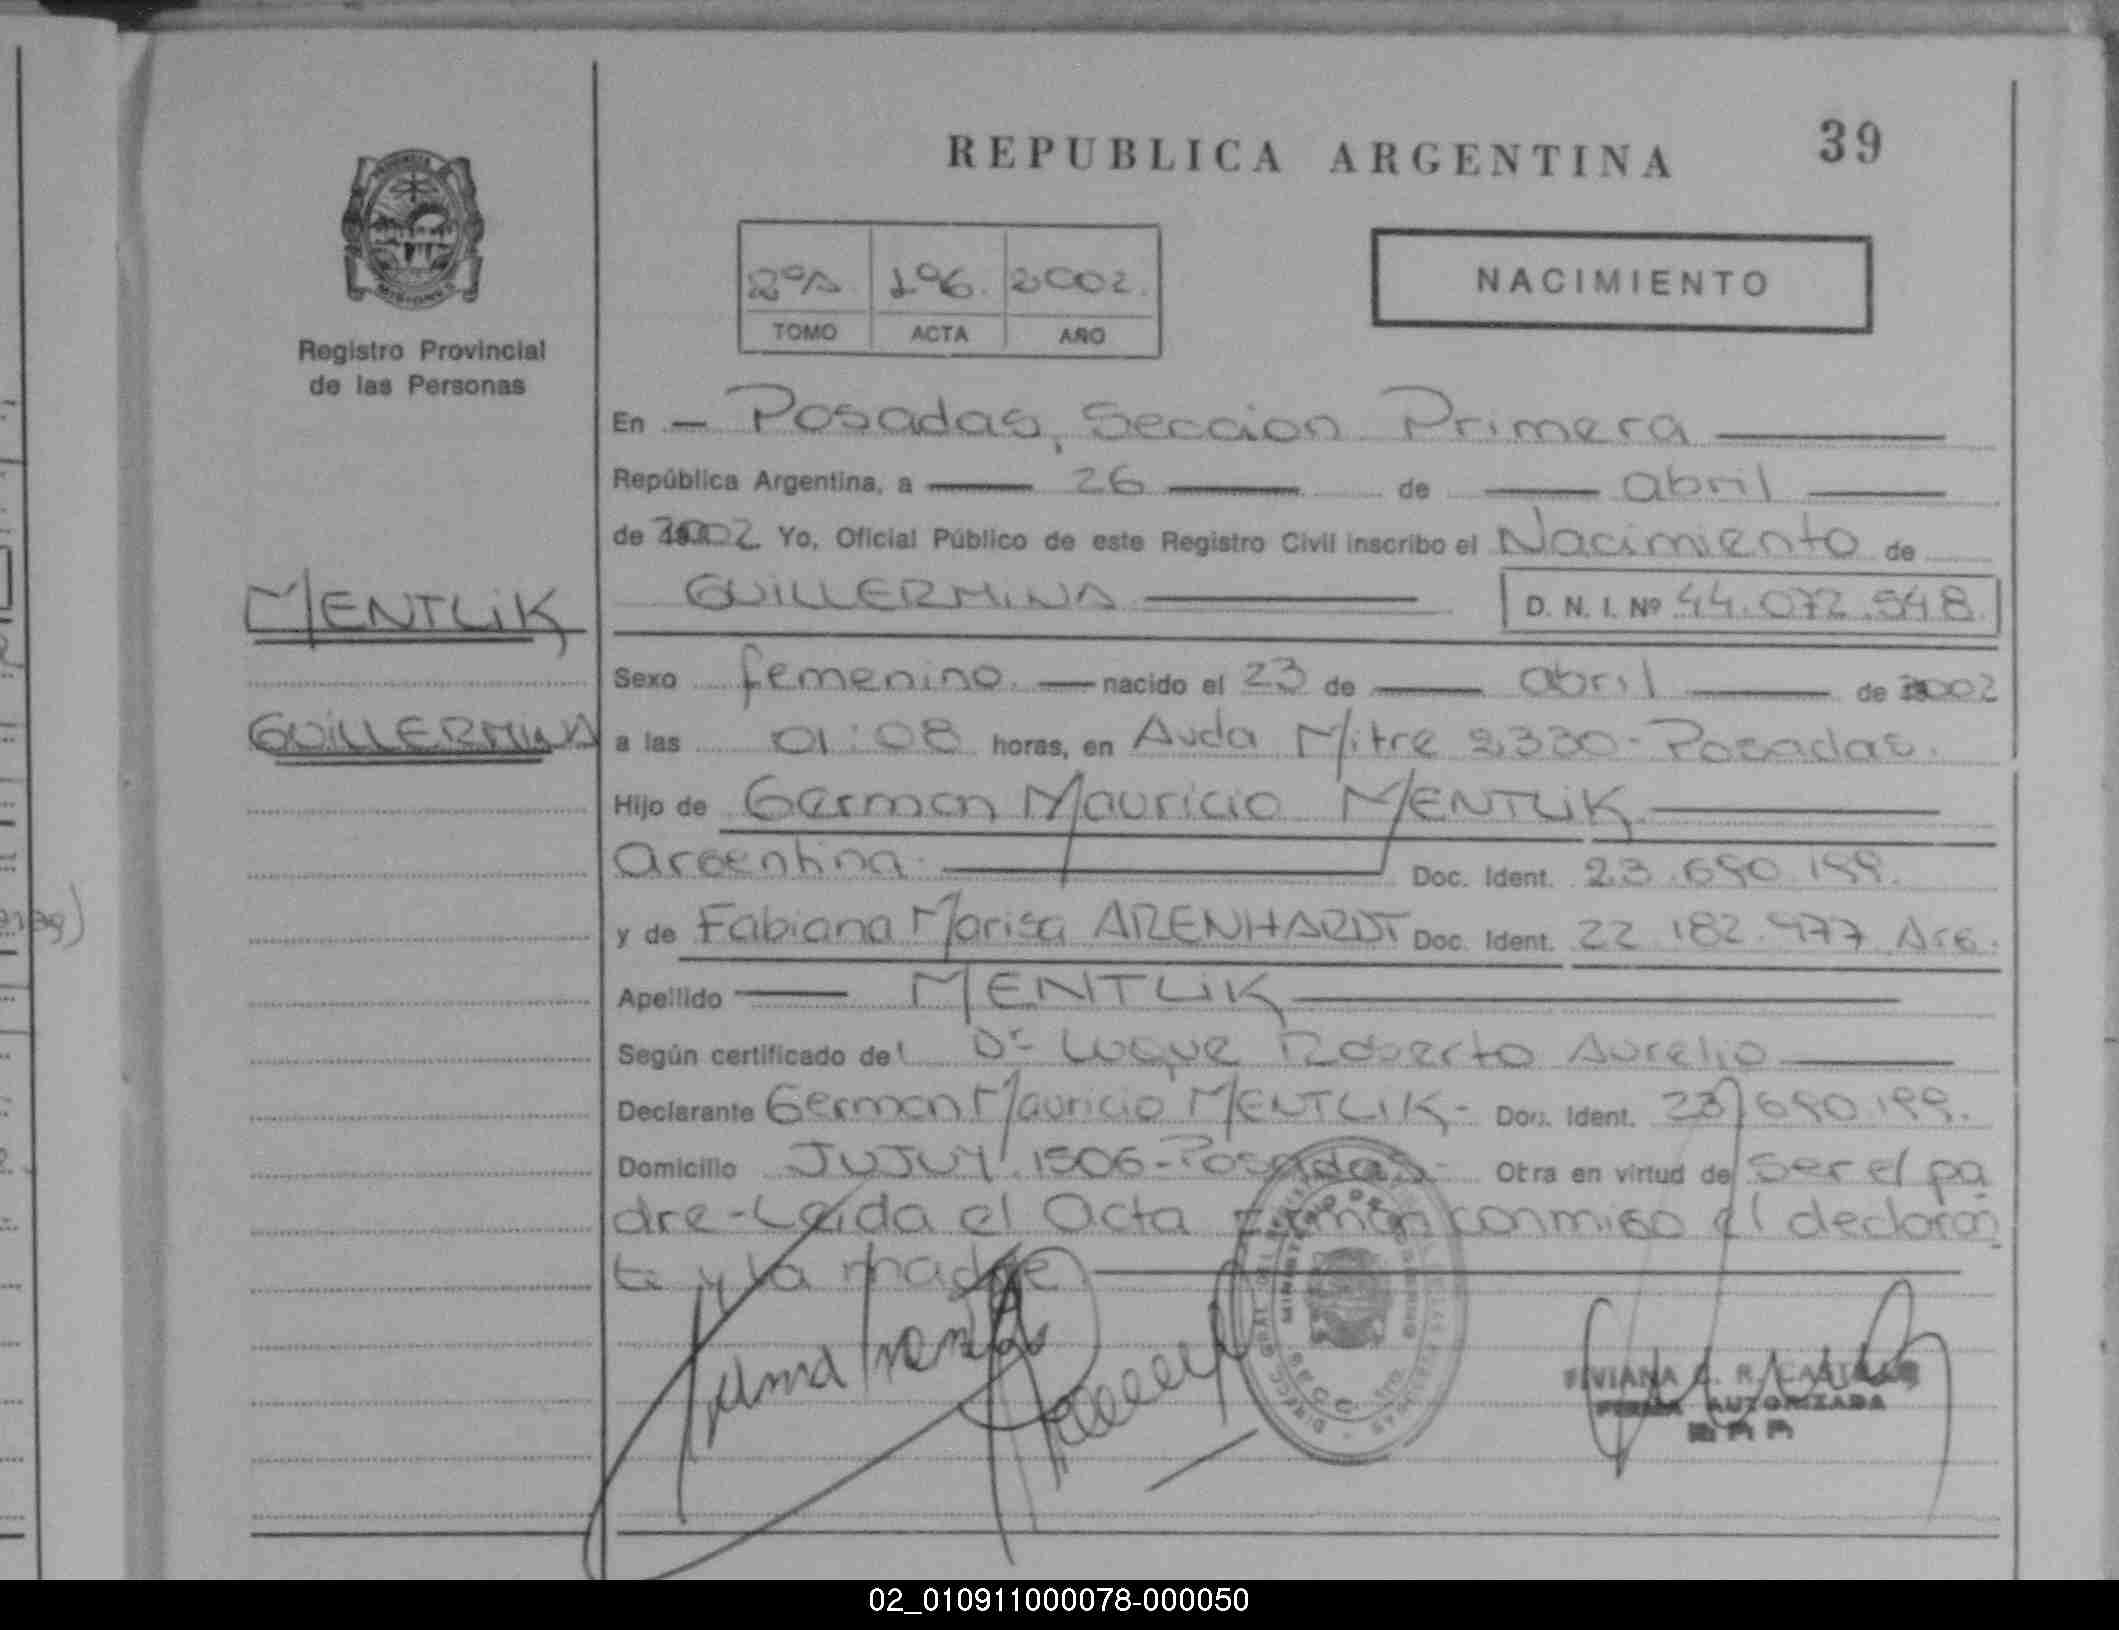 REPUBLICA ARGENTINA
39
PROVINCIA
MISIONES
Registro Provincial
de las Personas
2ºA 196. 2002.
TOMO ACTA AÑO
NACIMIENTO
En — Posadas, Seccion Primera
República Argentina, a 26 de abril
de 2002 Yo, Oficial Público de este Registro Civil inscribo el Nacimiento de
GUILLERMINA D. N. I. Nº 44.072.548
MENTLIK
GUILLERMINA
Sexo femenino. nacido el 23 de abril de 2002
a las 01:08 horas, en Avda Mitre 2330-Posadas.
Hijo de German Mauricio MENTLIK
argentina. Doc. Ident. 23.690.199.
y de Fabiana Marisa ARENHARDT Doc. Ident. 22.182.477 Arg.
Apellido MENTLIK
Según certificado del Dr Luque Roberto Aurelio
Declarante German Mauricio MENTLIK- Doc. Ident. 23.690.199.
Domicilio JUJUY 1506-Posadas- Otra en virtud de ser el pa
dre-Leida el Acta firman conmigo el declaran
te y la madre.
VIVIANA R. CASTILLO
FIRMA AUTORIZADA
02_010911000078-000050